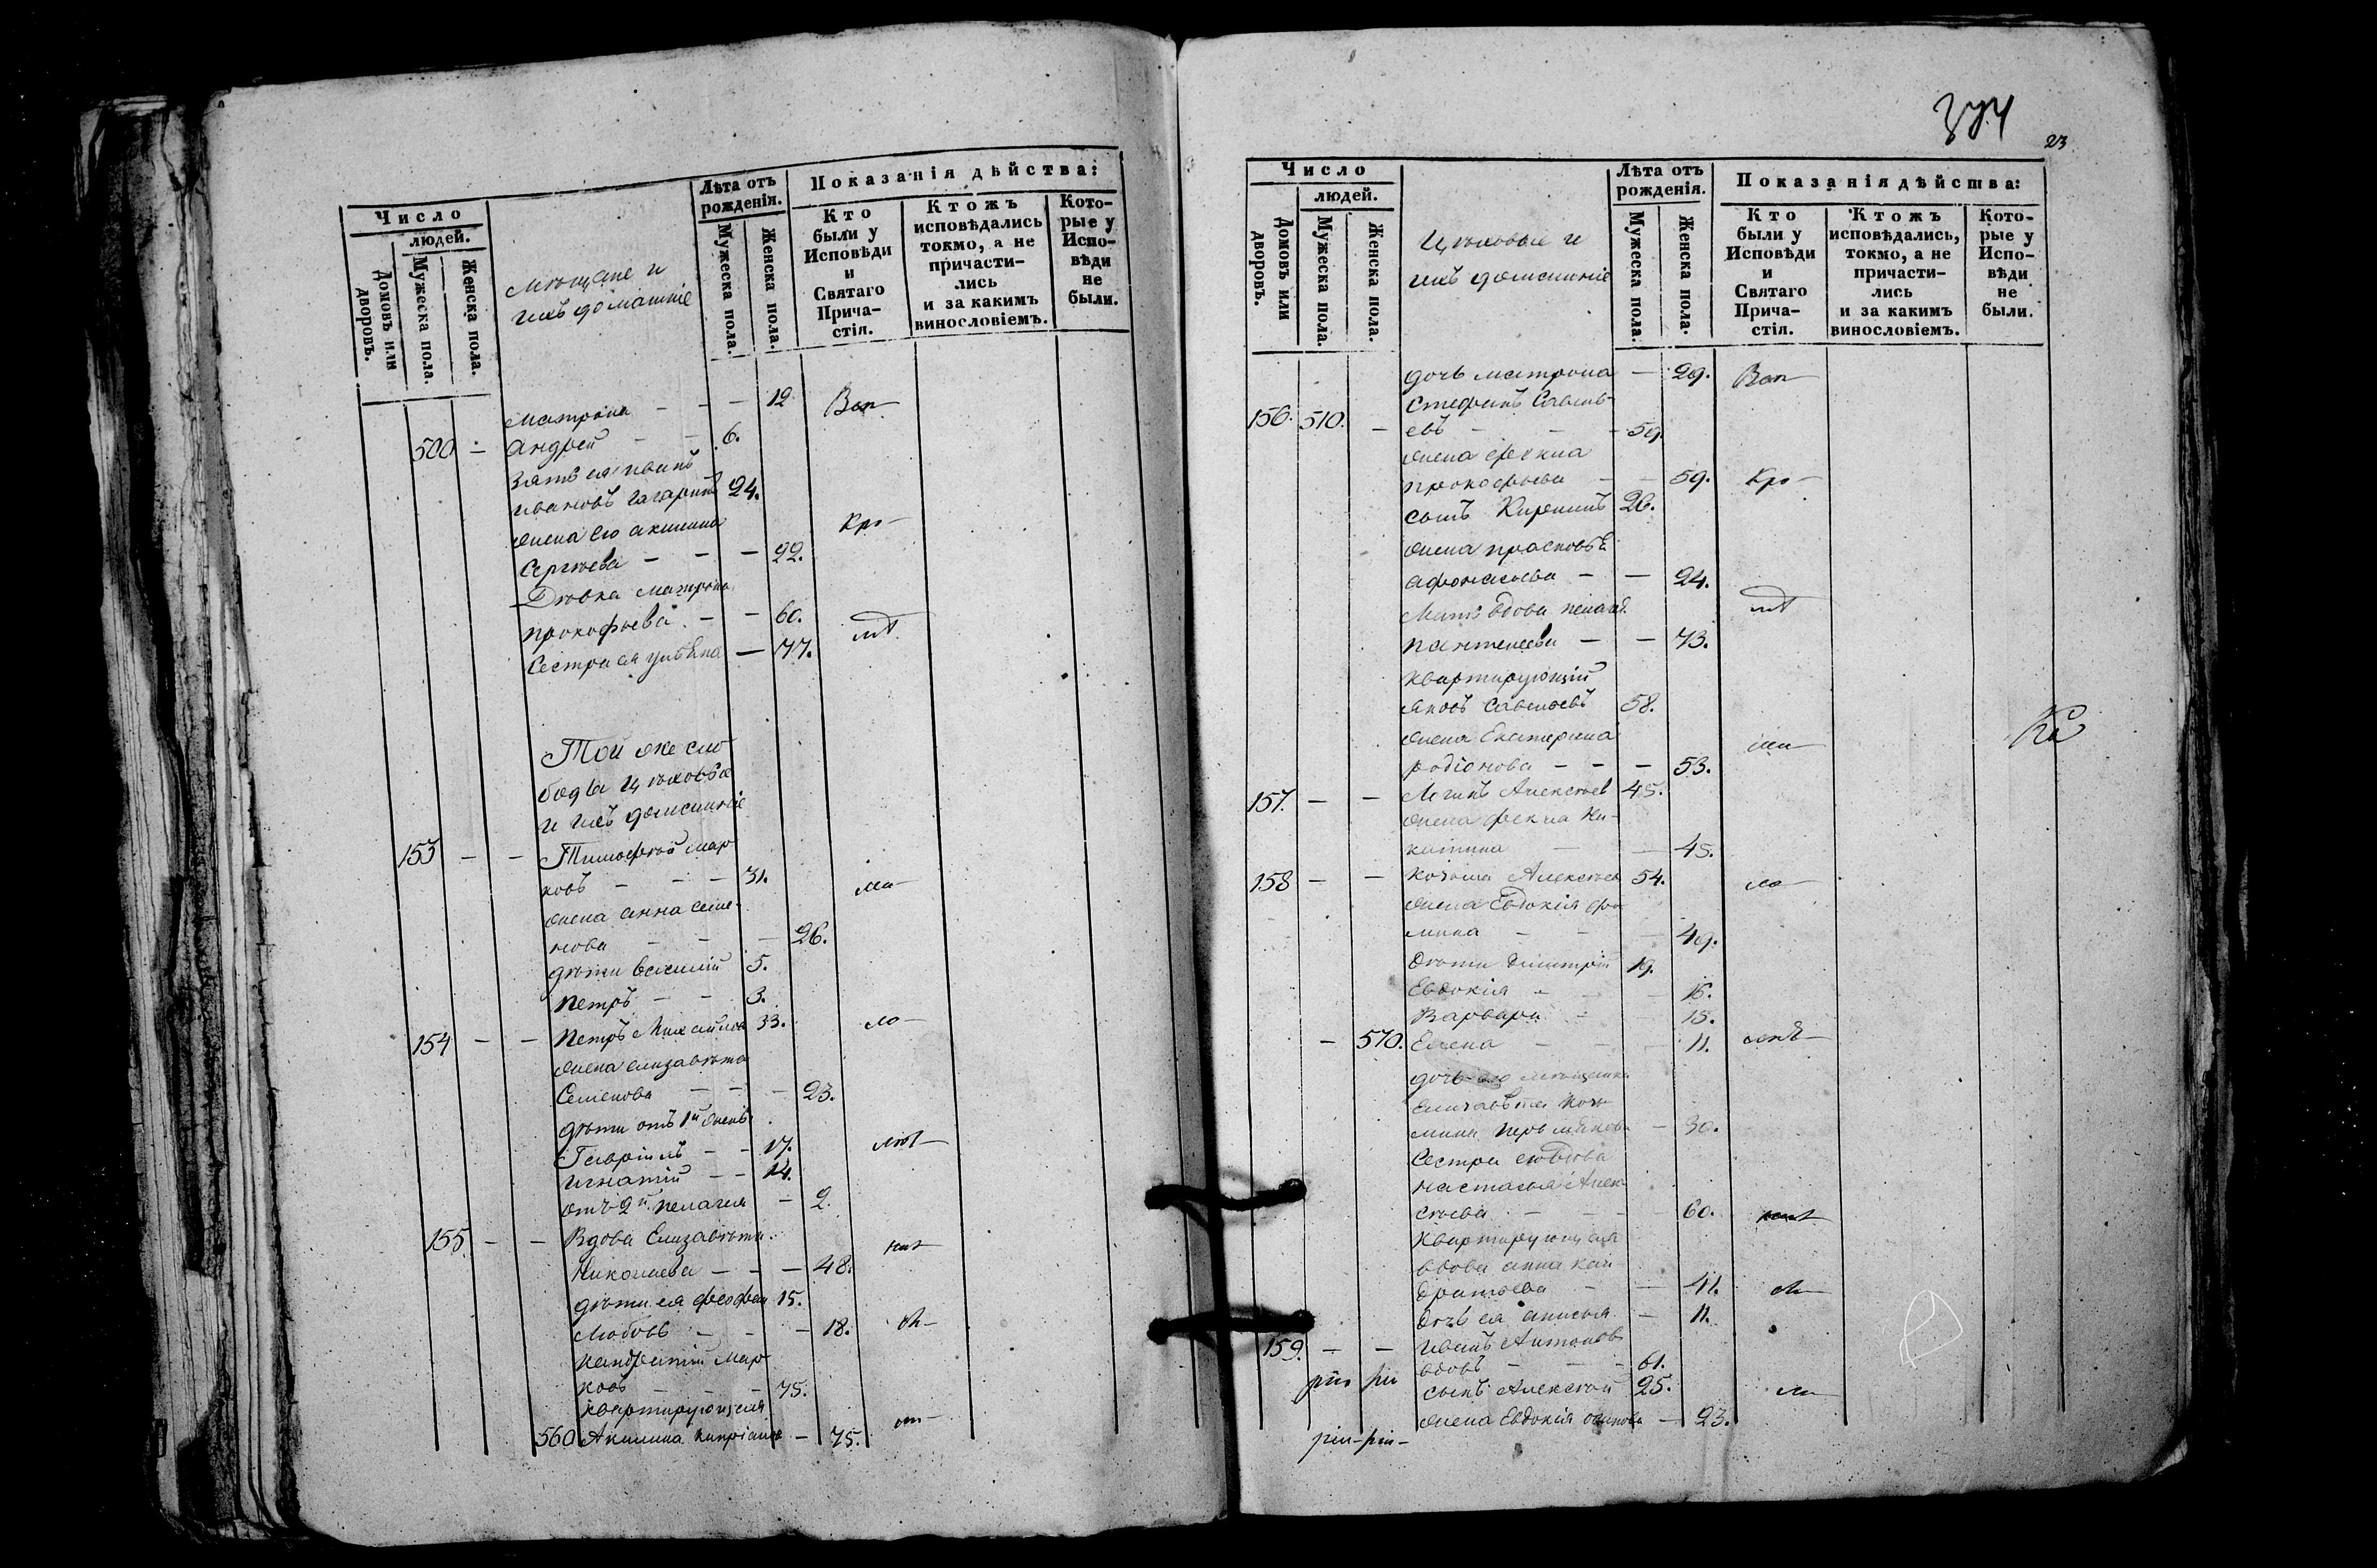 Число
людей.
Домовъ или дворовъ.
Мужеска пола.
Женска пола.
Мѣщане и
ихъ домашніе
Лѣта отъ
рожденія.
Мужеска пола.
Женска пола.
Показанія дѣйства:
Кто
были у
Исповѣди
и
Святаго
Прича-
стія.
Ктожъ
исповѣдались
токмо, а не
причасти-
лись
и за какимъ
винословіемъ.
Кото-
рые у
Испо-
вѣди
не
были.
Матрона — — — 12
500 — Андрей — — 6.
Зять ея Иванъ
Ивановъ Гагаринъ 24.
жена его Акилина
Сергѣева — — — 22.
Дѣвка Матрона
Прокофьева — — 60.
Сестра ея Ульяна — 77.
Той же сло
боды Цѣховые
и ихъ домашніе
153 — — Тимофѣй Мар
ковъ — — — 31.
жена Анна Семе-
нова — — — 26.
дѣти Василій 5.
Петръ — — 3.
154 — — Петръ Михайлов 33.
жена Елизавѣта
Семенова — — — 23.
дѣти отъ 1й жены
Гавріилъ — — 17.
Игнатій — — 14.
отъ 2й Пелагея — 2.
155 — — Вдова Елизавѣта
Николаева — — — 48.
дѣти ея Феофан 15.
Любовь — — — 18.
Кандратій Мар
ковъ — — — 75.
Квартирующая
560 Акилина Кипріанова — 75.
374
23
Число
людей.
Домовъ или дворовъ.
Мужеска пола.
Женска пола.
Цѣховые и
ихъ домашніе
Лѣта отъ
рожденія.
Мужеска пола.
Женска пола.
Показанія дѣйства:
Кто
были у
Исповѣди
и
Святаго
Прича-
стія.
Ктожъ
исповѣдались,
токмо, а не
причасти-
лись
и за какимъ
винословіемъ.
Кото-
рые у
Испо-
вѣди
не
были.
дочь Матрона — 29.
Стефанъ Савель-
156. 510. — евъ — — — 59.
жена Фекла
Прокофьева — — 59.
сынъ 26.
жена Прасковья
Афонасьева — — 24.
Мать вдова Пелагея
Пантелеева — — 73.
Квартирующій
Яковъ Савельевъ 58.
жена Екатерина
Родіонова — — — 53.
157. — — Логинъ Алексѣев 45.
жена Фекла Ни-
китина — — 45.
158 — — Алексѣев 54.
жена Евдокія Фо
мина — — — 49.
дѣти Димитрій 19.
Евдокія — — — 16.
Варвара — — 15.
— 570. Елена — — — 11.
дочь его мѣщанка
30.
Сестра его вдова
Настасья Алек
сѣева — — — 60.
Квартирующая
вдова Анна Кан
дратьева — — 41.
дочь ея Анисья — 11.
159. — — Иванъ Антоновъ
вдовъ — — — 61.
сынъ Алексѣй 25.
жена Евдокія Осипова — 23.